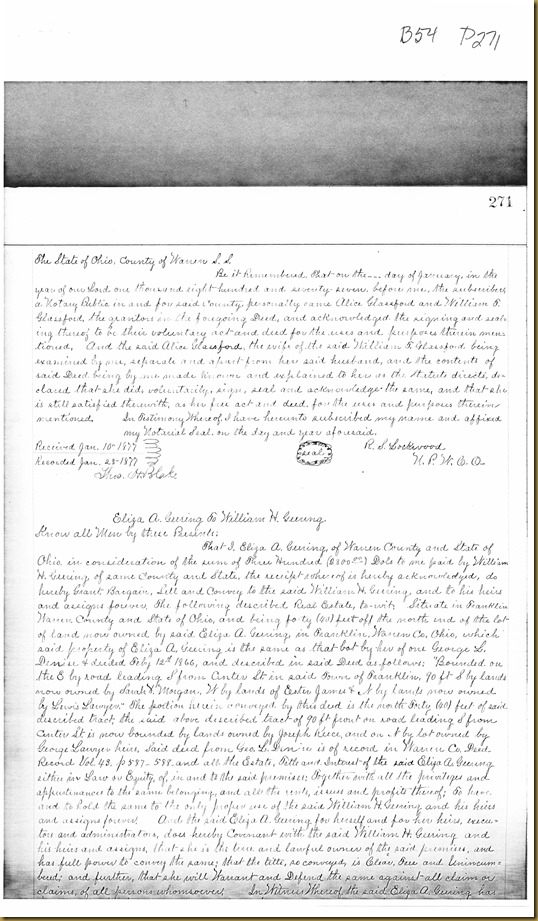 B54 P271
271
The State of Ohio, County of Warren S.S.
Be it Remembered That on the --- day of January, in the
year of our Lord one thousand eight hundred and seventy seven before me, the subscriber
a Notary Public in and for said County, personally came Alice Glassford and William F.
Glassford, the grantors in the foregoing Deed, and acknowledged the signing and seal-
ing thereof to be their voluntary act and deed for the uses and purposes therein men-
tioned. And the said Alice Glassford, the wife of the said William F. Glassford being
examined by me, separate and apart from her said husband, and the contents of
said Deed being by me made known and explained to her as the Statute directs, de-
clared that she did voluntarily, sign, seal and acknowledge the same, and that she
is still satisfied therewith, as her free act and deed, for the uses and purposes therein
mentioned. In Testimony Whereof, I have hereunto subscribed my name and affixed
my Notarial Seal, on the day and year aforesaid.
Received Jan. 10th 1877 R. S. Lockwood
Recorded Jan. 23 1877 seal N. P. W. C. O.
Eliza A. Geering To William H. Geering
Know all Men by these Presents:
That I, Eliza A. Geering, of Warren County and State of
Ohio, in consideration of the sum of Three Hundred ($300.00) Dols to me paid by William
H. Geering of same County and State, the receipt whereof is hereby acknowledged, do
hereby Grant Bargain, Sell and Convey to the said William H. Geering, and to his heirs
and assigns forever, The following described Real Estate, to-wit; Situate in Franklin
Warren County and State of Ohio, and being forty (40) feet off the north end of the lot
of land now owned by said Eliza A. Geering, in Franklin, Warren Co, Ohio, which
said property of Eliza A. Geering is the same as that bot by her of one George L.
Denise & deeded Feby 12th 1866, and described in said Deed as follows: "Bounded on
the E by road leading S from Center St in said Town of Franklin, 90 ft S by lands
now owned by Sarah Morgan, W by lands of Ester James & N by lands now owned
by Lewis Lawyer." The portion herein conveyed by this deed is the north Forty (40) feet of said
described tract; the said above described tract of 90 ft front on road leading S from
Center St is now bounded by lands owned by Joseph and on N by lot owned by
George Lawyer heirs, Said deed from Geo L. Denise is of record in Warren Co, Deed
Record Vol 43, p 587-588. and all the Estate, Title and Interest of the said Eliza A. Geering
either in Law or Equity, of, in and to the said premises; Together with all the privileges and
appurtenances to the same belonging, and all the rents, issues and profits thereof; To have
and to hold the same to the only proper use of the said William H. Geering and his heirs
and assigns forever. And the said Eliza A. Geering for herself and for her heirs, execu-
tors and administrators, does hereby Covenant with the said William H. Geering and
his heirs and assigns, that she is the true and lawful owner of the said premises, and
has full power to convey the same; that the title, so conveyed, is Clear, Free and Unincum-
bered; and further, that she will Warrant and Defend the same against all claim or
claims, of all persons whomsoever. In Witness Whereof, the said Eliza A. Geering has